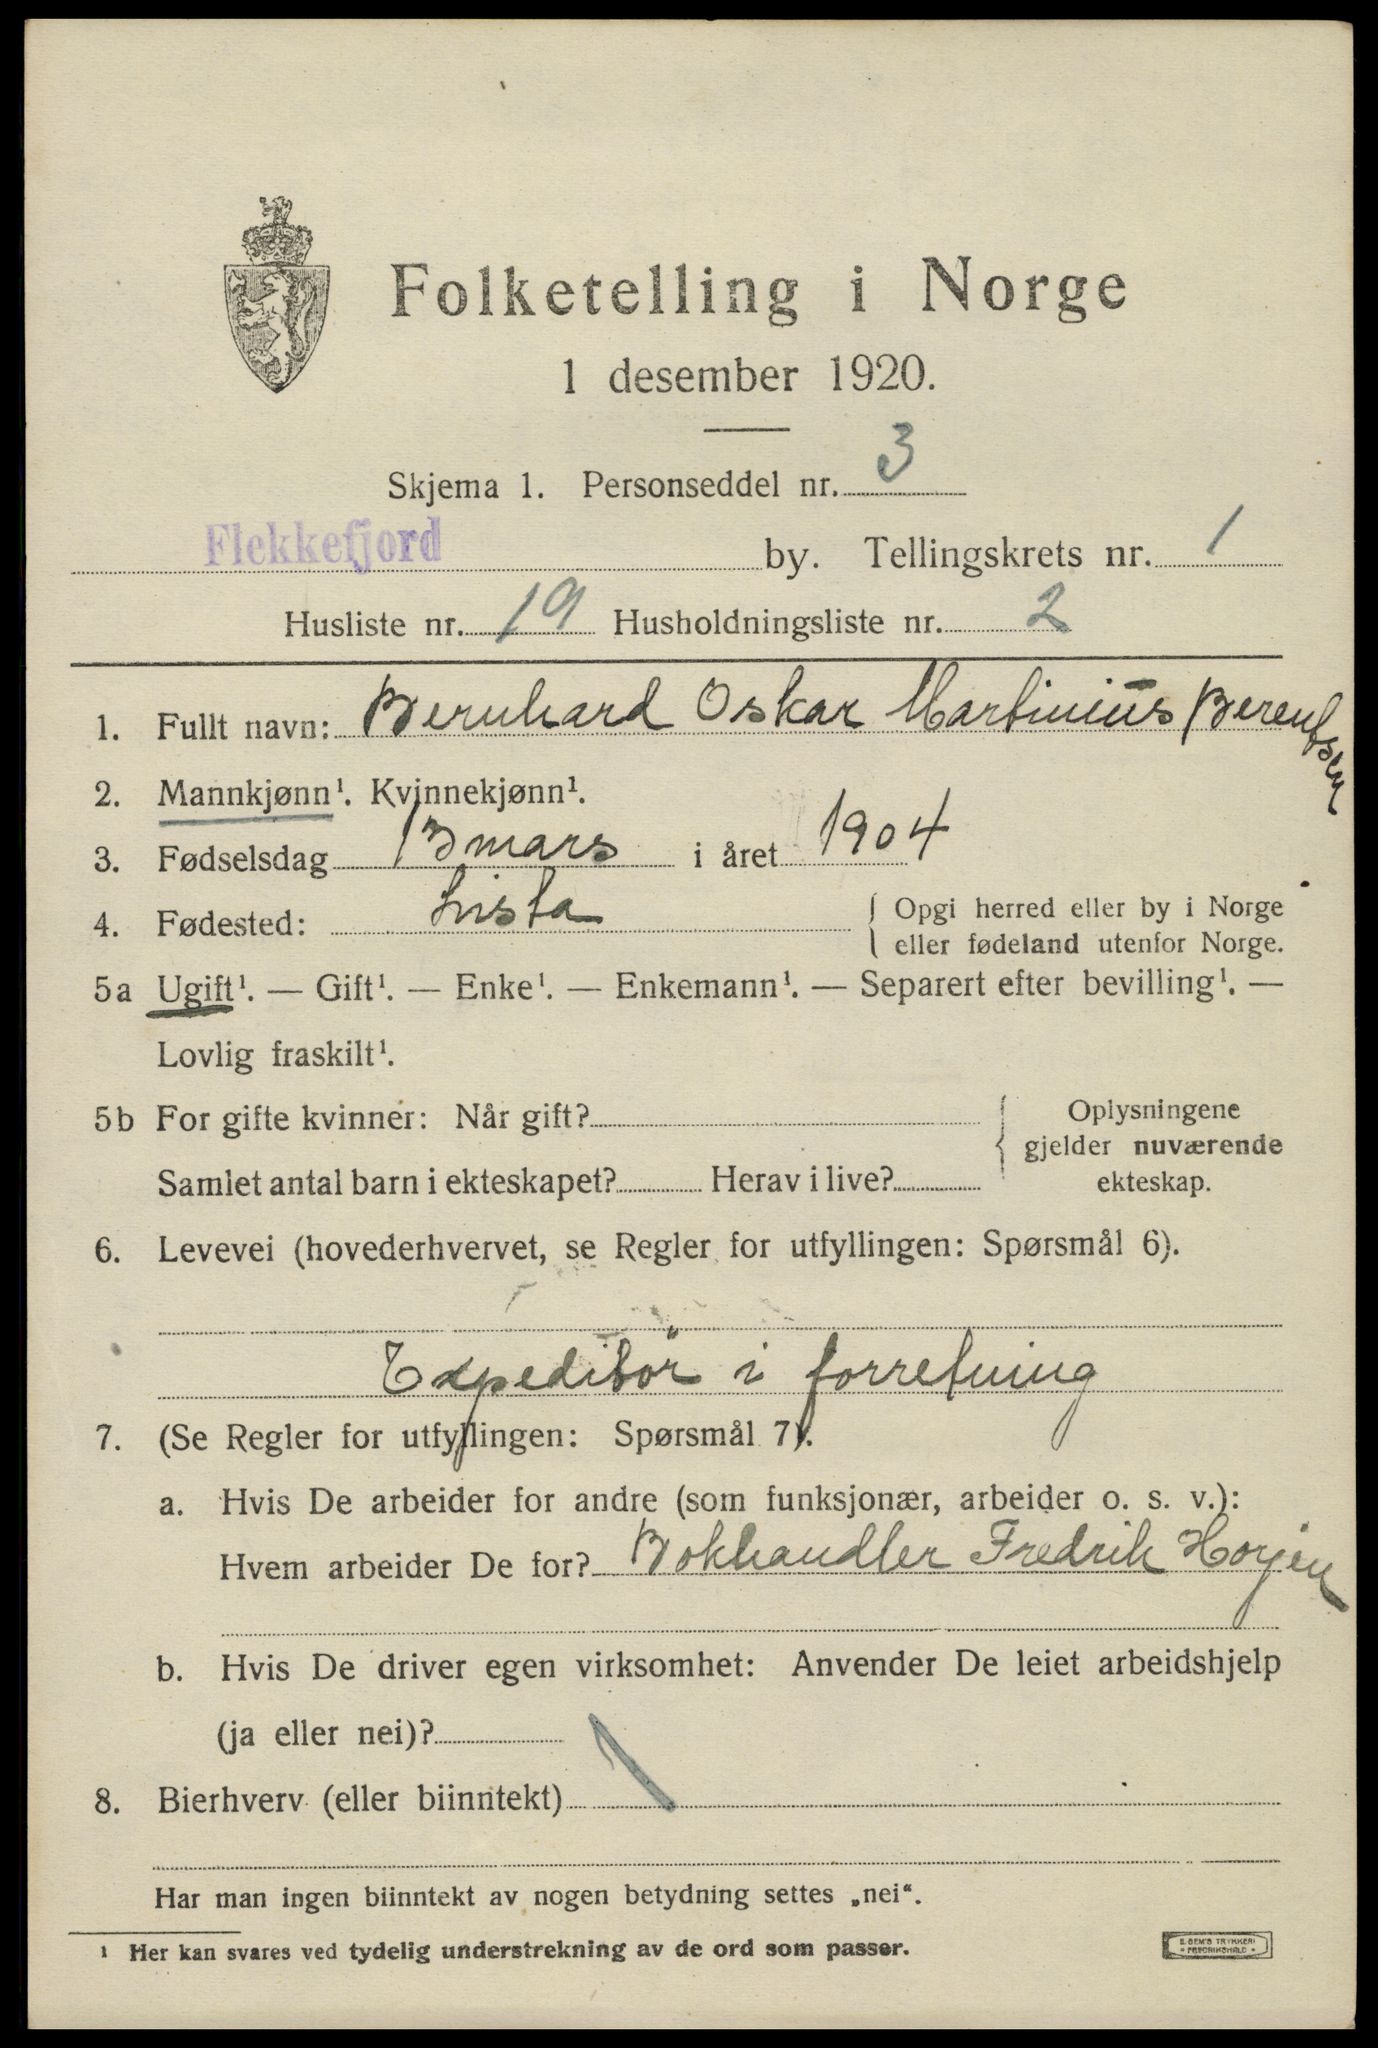 Folketelling i Norge
1 desember 1920.
Skjema 1. Personseddel nr. 3
Flekkefjord by. Tellingskrets nr. 1
Husliste nr. 19 Husholdningsliste nr. 2
1. Fullt navn: Bernhard Oskar Martinius Berentsen
2. Mannkjønn¹. Kvinnekjønn¹.
3. Fødselsdag 13 mars i året 1904
4. Fødested: Lista { Opgi herred eller by i Norge
eller fødeland utenfor Norge.
5a Ugift¹. — Gift¹. — Enke¹. — Enkemann¹. — Separert efter bevilling¹. —
Lovlig fraskilt¹.
5b For gifte kvinner: Når gift? { Oplysningene
gjelder nuværende
Samlet antal barn i ekteskapet? Herav i live? ekteskap.
6. Levevei (hovederhvervet, se Regler for utfyllingen: Spørsmål 6).
Expeditør i forretning
7. (Se Regler for utfyllingen: Spørsmål 7).
a. Hvis De arbeider for andre (som funksjonær, arbeider o. s. v.):
Hvem arbeider De for? Bokhandler Fredrik Horjen
b. Hvis De driver egen virksomhet: Anvender De leiet arbeidshjelp
(ja eller nei)?
8. Bierhverv (eller biinntekt)
Har man ingen biinntekt av nogen betydning settes „nei“.
¹ Her kan svares ved tydelig understrekning av de ord som passer.
E. SEM'S TRYKKERI
* FREDRIKSHALD *